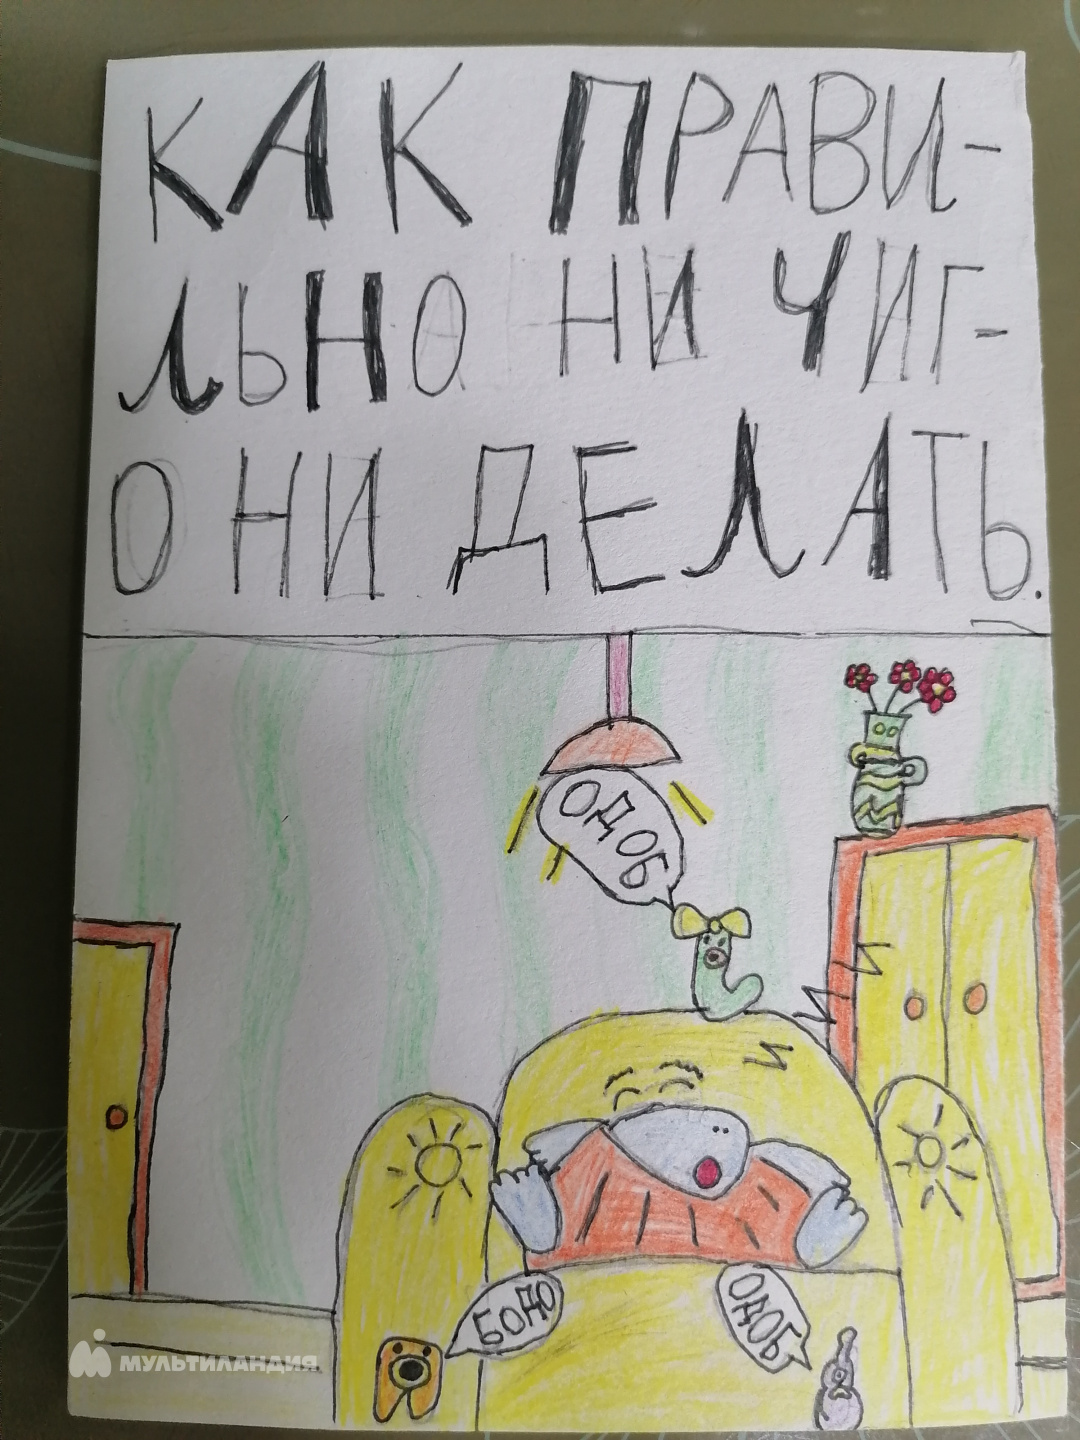 КАК ПРАВИ-
ЛЬНО НИ ЧИГ-
ОНИ ДЕЛАТЬ.
ОДОБ
И И И
БОДО
ОДОБ
МУЛЬТИЛАНДИЯ